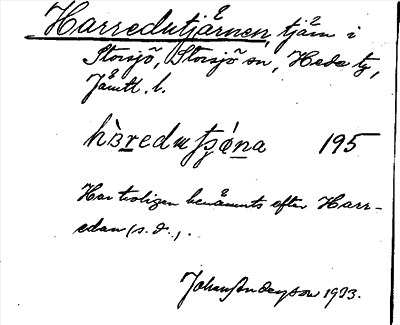 Harredutjärnen, tjärn i
Storsjö, Storsjö sn, Hede tg,
Jämtl. l.
195
Har troligen benämnts efter Harr-
edan (s. d.).
Johan Anderson 1933.